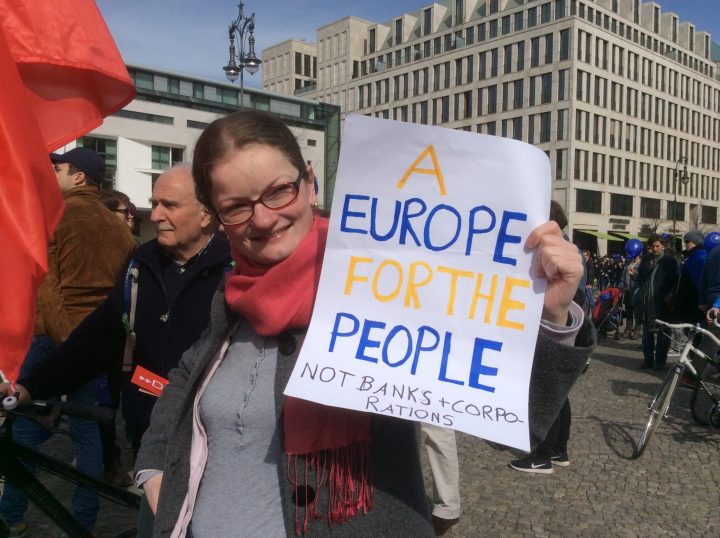 A
EUROPE
FOR THE
PEOPLE
NOT BANKS + CORPO-
RATIONS